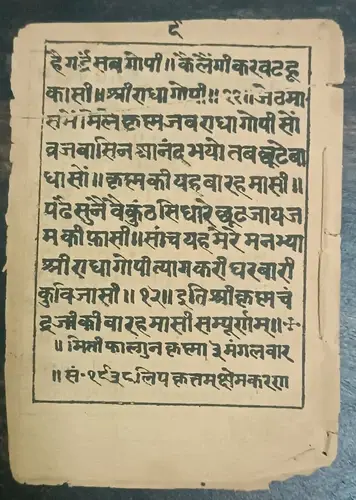 ९
है गई सब गोपी॥ कै लैंगी करवट हू
कासी॥ श्रीराधागोपी॥ ११॥ जेठमा
समें मिले कृष्ण जब राधागोपी सों
व्रजवासिन आनंद भयो तब छूटे बा
धासों॥ कृष्ण की यह बारहमासी॥
पढै सुनै वैकुंठ सिधारे छूट जाय ज
म की फासी॥ सांच यह मेरे मन भ्या
श्रीराधागोपी त्याग करी घरबारी
कुविजासी॥ १२॥ इति श्रीकृष्णचं
द्रजी की बारहमासी सम्पूर्णम्॥
॥ मिती फाल्गुन कृष्णा ३ मंगलवार
॥ सं॰ १९३८ लिपकृतम क्षेमकरण